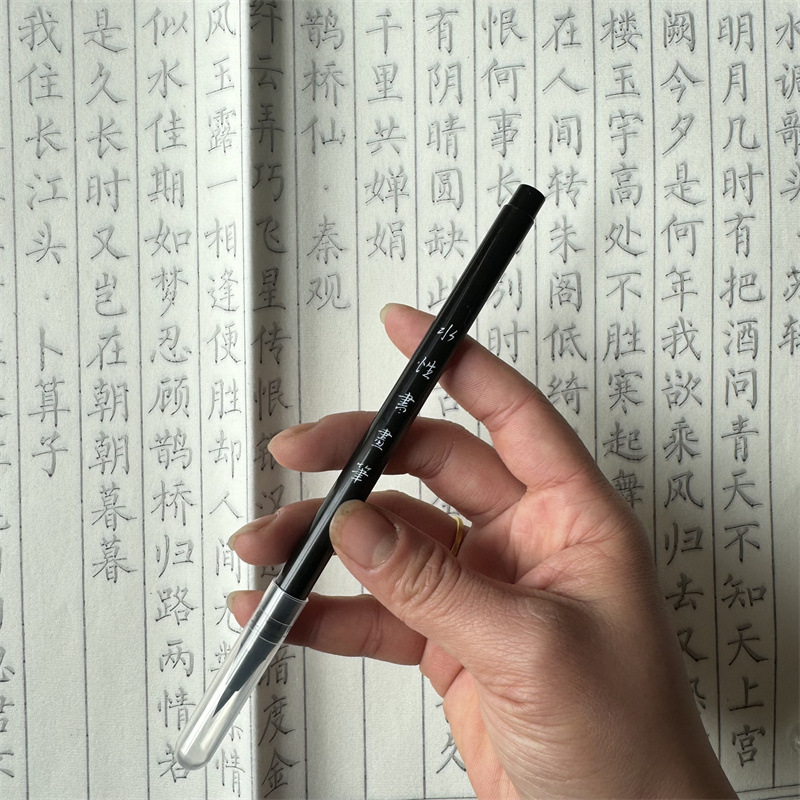 水调歌头·苏轼
明月几时有把酒问青天不知天上宫
阙今夕是何年我欲乘风归去又恐
楼玉宇高处不胜寒起舞
在人间转朱阁低绮
恨何事长别时
有阴晴圆缺此
千里共婵娟
鹊桥仙·秦观
纤云弄巧飞星传恨银汉暗度金
风玉露一相逢便胜却人间无数柔情
似水佳期如梦忍顾鹊桥归路两情若
是久长时又岂在朝朝暮暮
我住长江头·卜算子
水性書畫筆